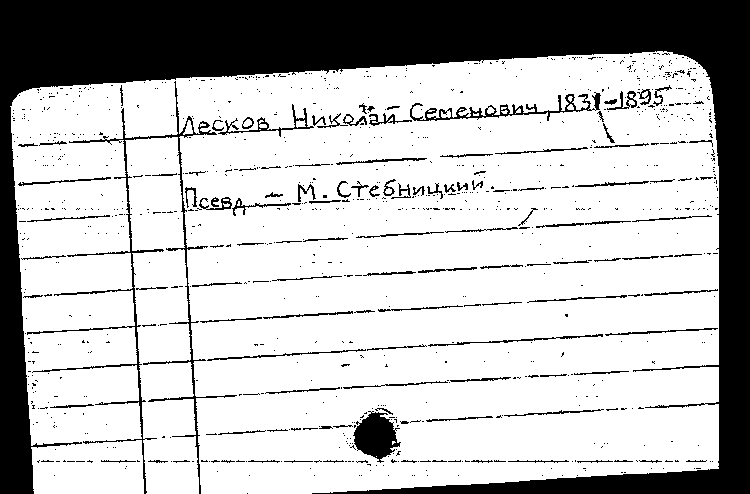 Лесков, Николай Семенович, 1831-1895
Псевд. - М. Стебницкий.